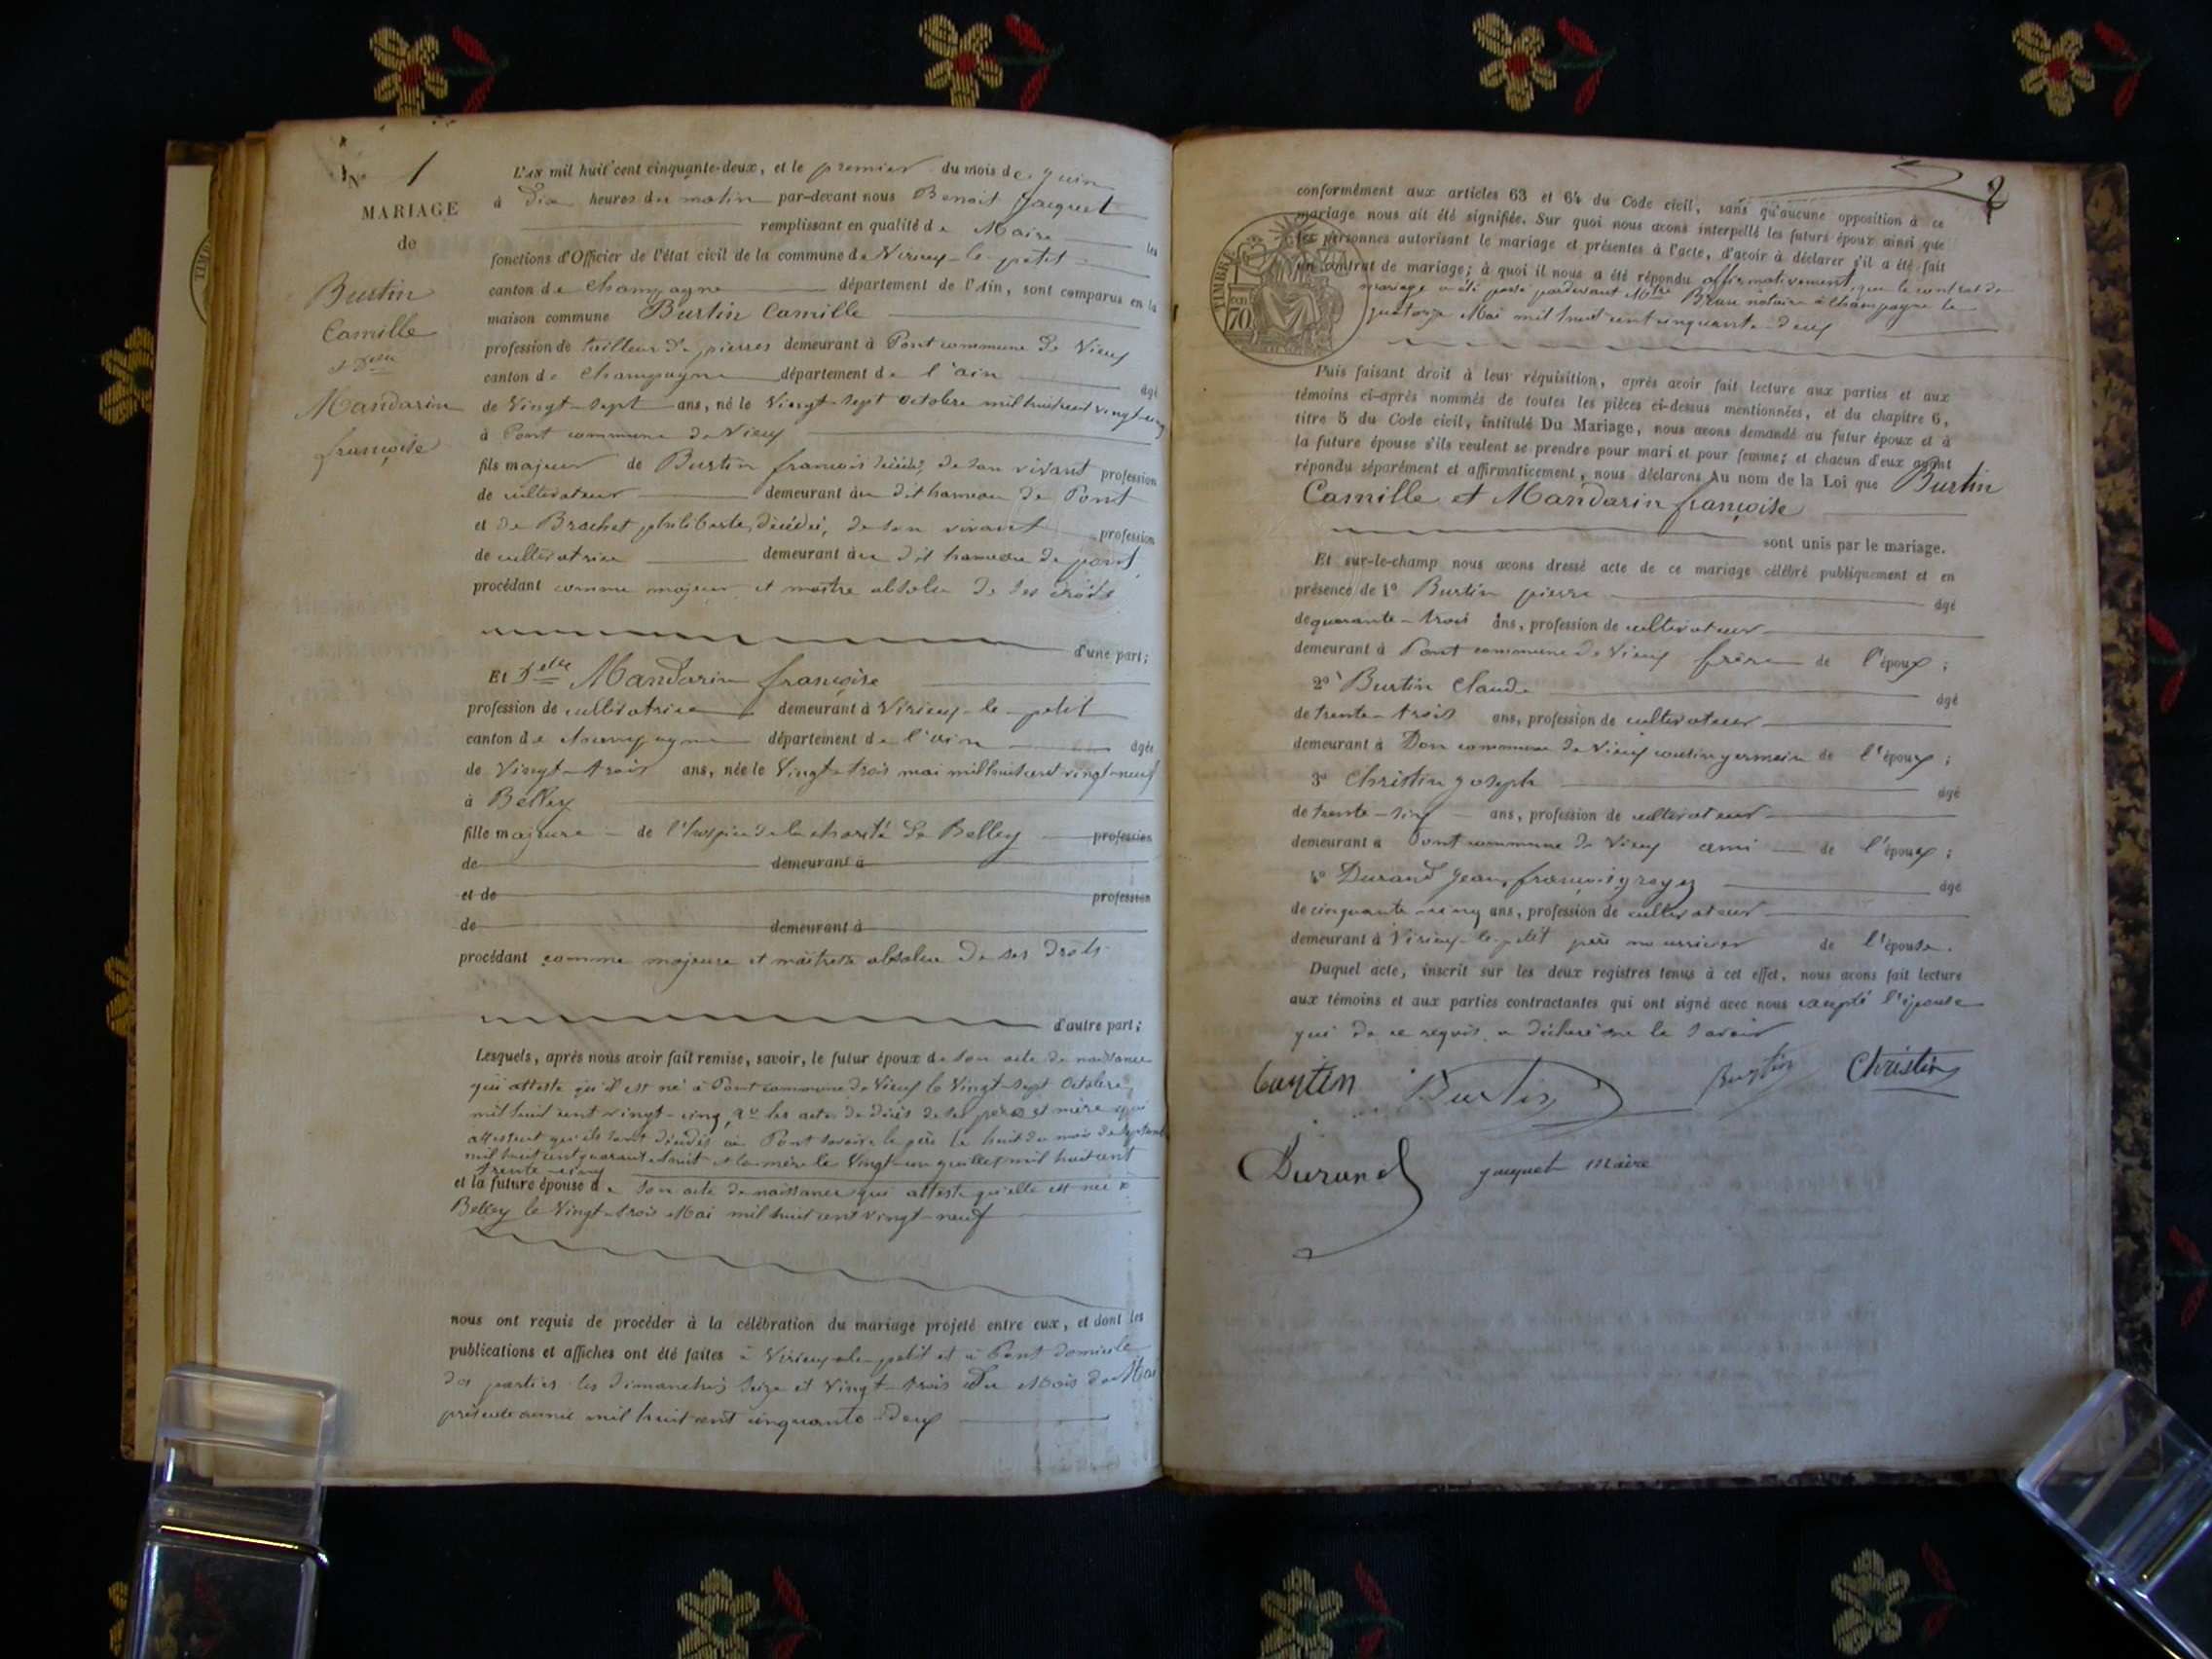 N° 1
MARIAGE
de
Burtin
Camille
et Delle
Mandarin
françoise
L'an mil huit cent cinquante-deux, et le premier du mois de juin
à Dix heures du matin par-devant nous Benoit Jacquet
remplissant en qualité de Maire les
fonctions d'Officier de l'état civil de la commune de Virieu-le-petit
canton de Champagne département de l'Ain, sont comparus en la
maison commune Burtin Camille
profession de tailleur de pierres demeurant à Pont commune de Vieu
canton de Champagne département de l'ain âgé
de Vingt-sept ans, né le Vingt-sept octobre mil huit cent vingt-cinq
à Pont commune de Vieu
fils majeur de Burtin francois décédé, de son vivant profession
de cultivateur demeurant au dit hameau de Pont
et de Brachet philiberte, décédée, de son vivant profession
de cultivatrice demeurant au dit hameau de pont
procédant comme majeur et maitre absolu de ses droits
d'une part;
Et Delle Mandarin françoise
profession de cultivatrice demeurant à Virieu-le-petit
canton de champagne département de l'ain âgée
de Vingt-trois ans, née le Vingt-trois mai mil huit cent vingt-neuf
à Belley
fille majeure de l'hospice de la charité de Belley profession
de demeurant à
et de profession
de demeurant à
procédant comme majeure et maitresse absolue de ses droits
d'autre part;
Lesquels, après nous avoir fait remise, savoir, le futur époux de son acte de naissance
qui atteste qu'il est né à Pont commune de Vieu le Vingt-sept Octobre
mil huit cent vingt-cinq, 2° les actes de décès de ses père et mère qui
attestent qu'ils sont décédés à Pont savoir le père le huit du mois de septembre
mil huit cent quarante-huit et la mère le Vingt-un juillet mil huit cent
trente-cinq
et la future épouse de son acte de naissance qui atteste qu'elle est née à
Belley le Vingt-trois Mai mil huit cent vingt-neuf
nous ont requis de procéder à la célébration du mariage projeté entre eux, et dont les
publications et affiches ont été faites à Virieu-le-petit et à Pont domicile
des parties les dimanches seize et vingt-trois du Mois de Mai
présente année mil huit cent cinquante-deux
2
conformément aux articles 63 et 64 du Code civil, sans qu'aucune opposition à ce
mariage nous ait été signifiée. Sur quoi nous avons interpellé les futurs époux ainsi que
les personnes autorisant le mariage et présentes à l'acte, d'avoir à déclarer s'il a été fait
un contrat de mariage; à quoi il nous a été répondu affirmativement, que le contrat de
mariage a été passé pardevant Mtre notaire à Champagne le
quatorze Mai mil huit cent cinquante-deux
TIMBRE
70
Puis faisant droit à leur réquisition, après avoir fait lecture aux parties et aux
témoins ci-après nommés de toutes les pièces ci-dessus mentionnées, et du chapitre 6,
titre 5 du Code civil, intitulé Du Mariage, nous avons demandé au futur époux et à
la future épouse s'ils veulent se prendre pour mari et pour femme; et chacun d'eux ayant
répondu séparément et affirmativement, nous déclarons Au nom de la Loi que Burtin
Camille et Mandarin françoise
sont unis par le mariage.
Et sur-le-champ nous avons dressé acte de ce mariage célébré publiquement et en
présence de 1° Burtin pierre âgé
de quarante-trois ans, profession de cultivateur
demeurant à Pont commune de Vieu frère de l'époux;
2° Burtin Claude âgé
de trente-trois ans, profession de cultivateur
demeurant à Don commune de Vieu cousin germain de l'époux;
3° Christin joseph âgé
de trente-six ans, profession de cultivateur
demeurant à Pont commune de Vieu ami de l'époux;
4° Durand Jean françois âgé
de cinquante-cinq ans, profession de cultivateur
demeurant à Virieu-le-petit père nourricier de l'épouse.
Duquel acte, inscrit sur les deux registres tenus à cet effet, nous avons fait lecture
aux témoins et aux parties contractantes qui ont signé avec nous excepté l'épouse
qui de ce requis a déclaré ne le savoir
Burtin Burtin Burtin Christin
Durand jacquet Maire